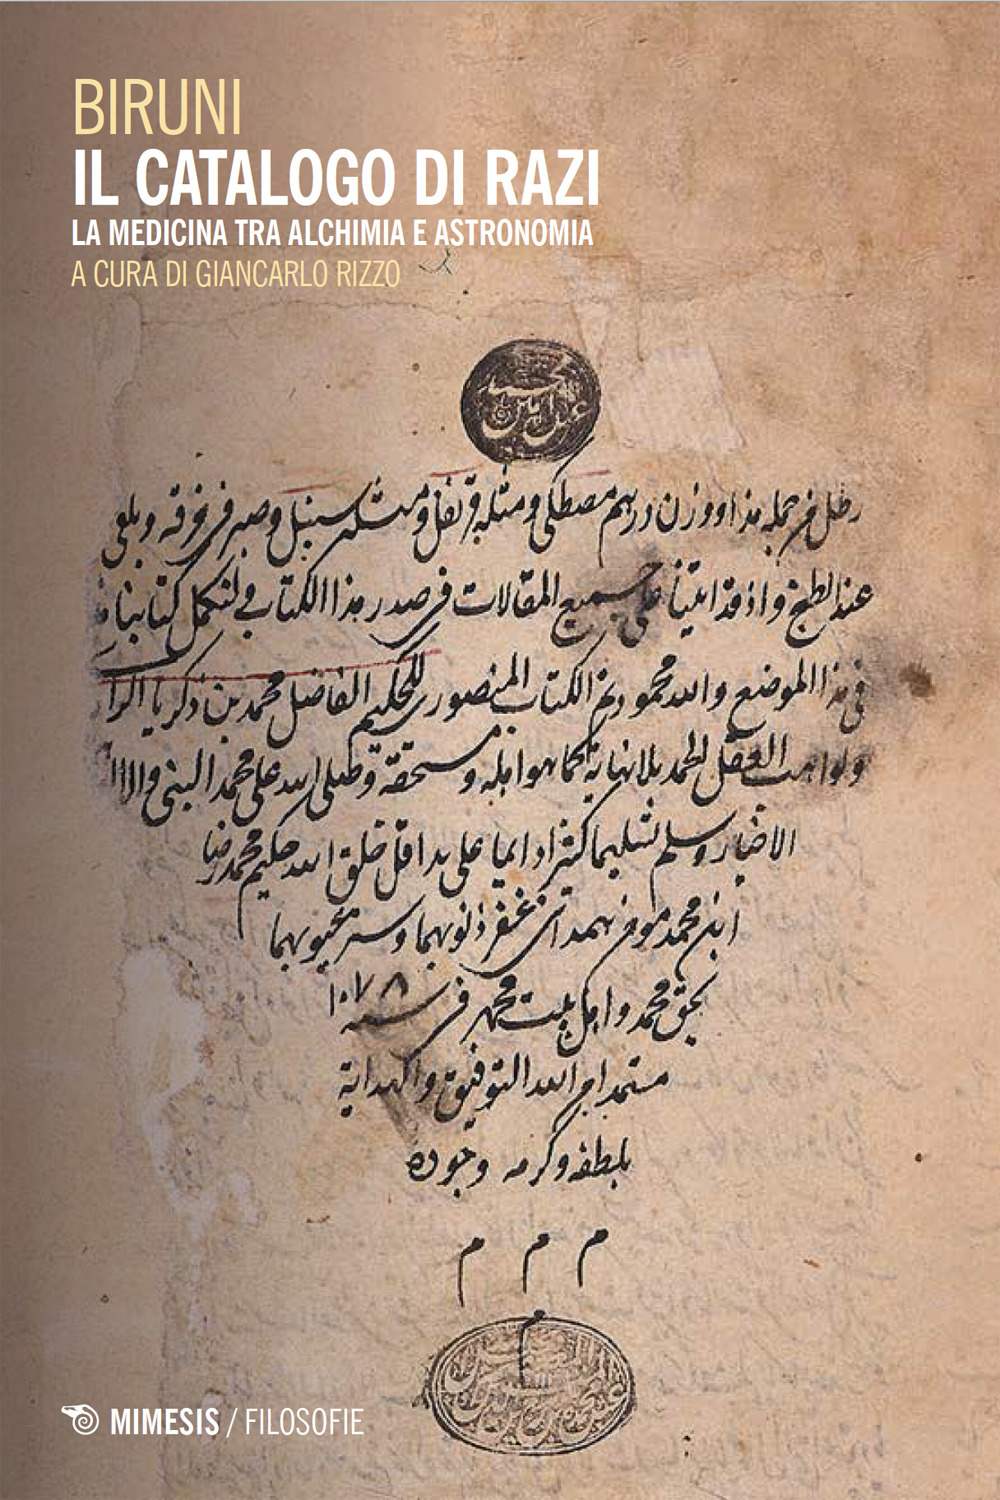 BIRUNI
IL CATALOGO DI RAZI
LA MEDICINA TRA ALCHIMIA E ASTRONOMIA
A CURA DI GIANCARLO RIZZO
رطل من جمله هذا ووزن درهم مصطكى ومثله قرنفل ومثله سنبل وصبر فى خرقه ويلقى
عند الطبخ واذ قد اتينا على جميع المقالات فى صدر هذا الكتاب فلنكمل كتابنا
فى هذا الموضع والله محمود تم الكتاب المنصورى للحكيم الفاضل محمد بن زكريا الرا
ولواهب العقل الحمد بلا نهاية كما هو اهله ومستحقه وصلى الله على محمد النبى واله
الاخيار وسلم تسليما كثيرا دايما على يد اقل خلق الله حكيم محمد رضا
ابن محمد مومن همدانى غفر ذنوبهما وستر عيوبهما
بحق محمد واهل بيت محمد فى سنه ١٠٧٨
مستمدا من الله التوفيق والهداية
بلطفه وكرمه وجوده
م م م
م
MIMESIS / FILOSOFIE